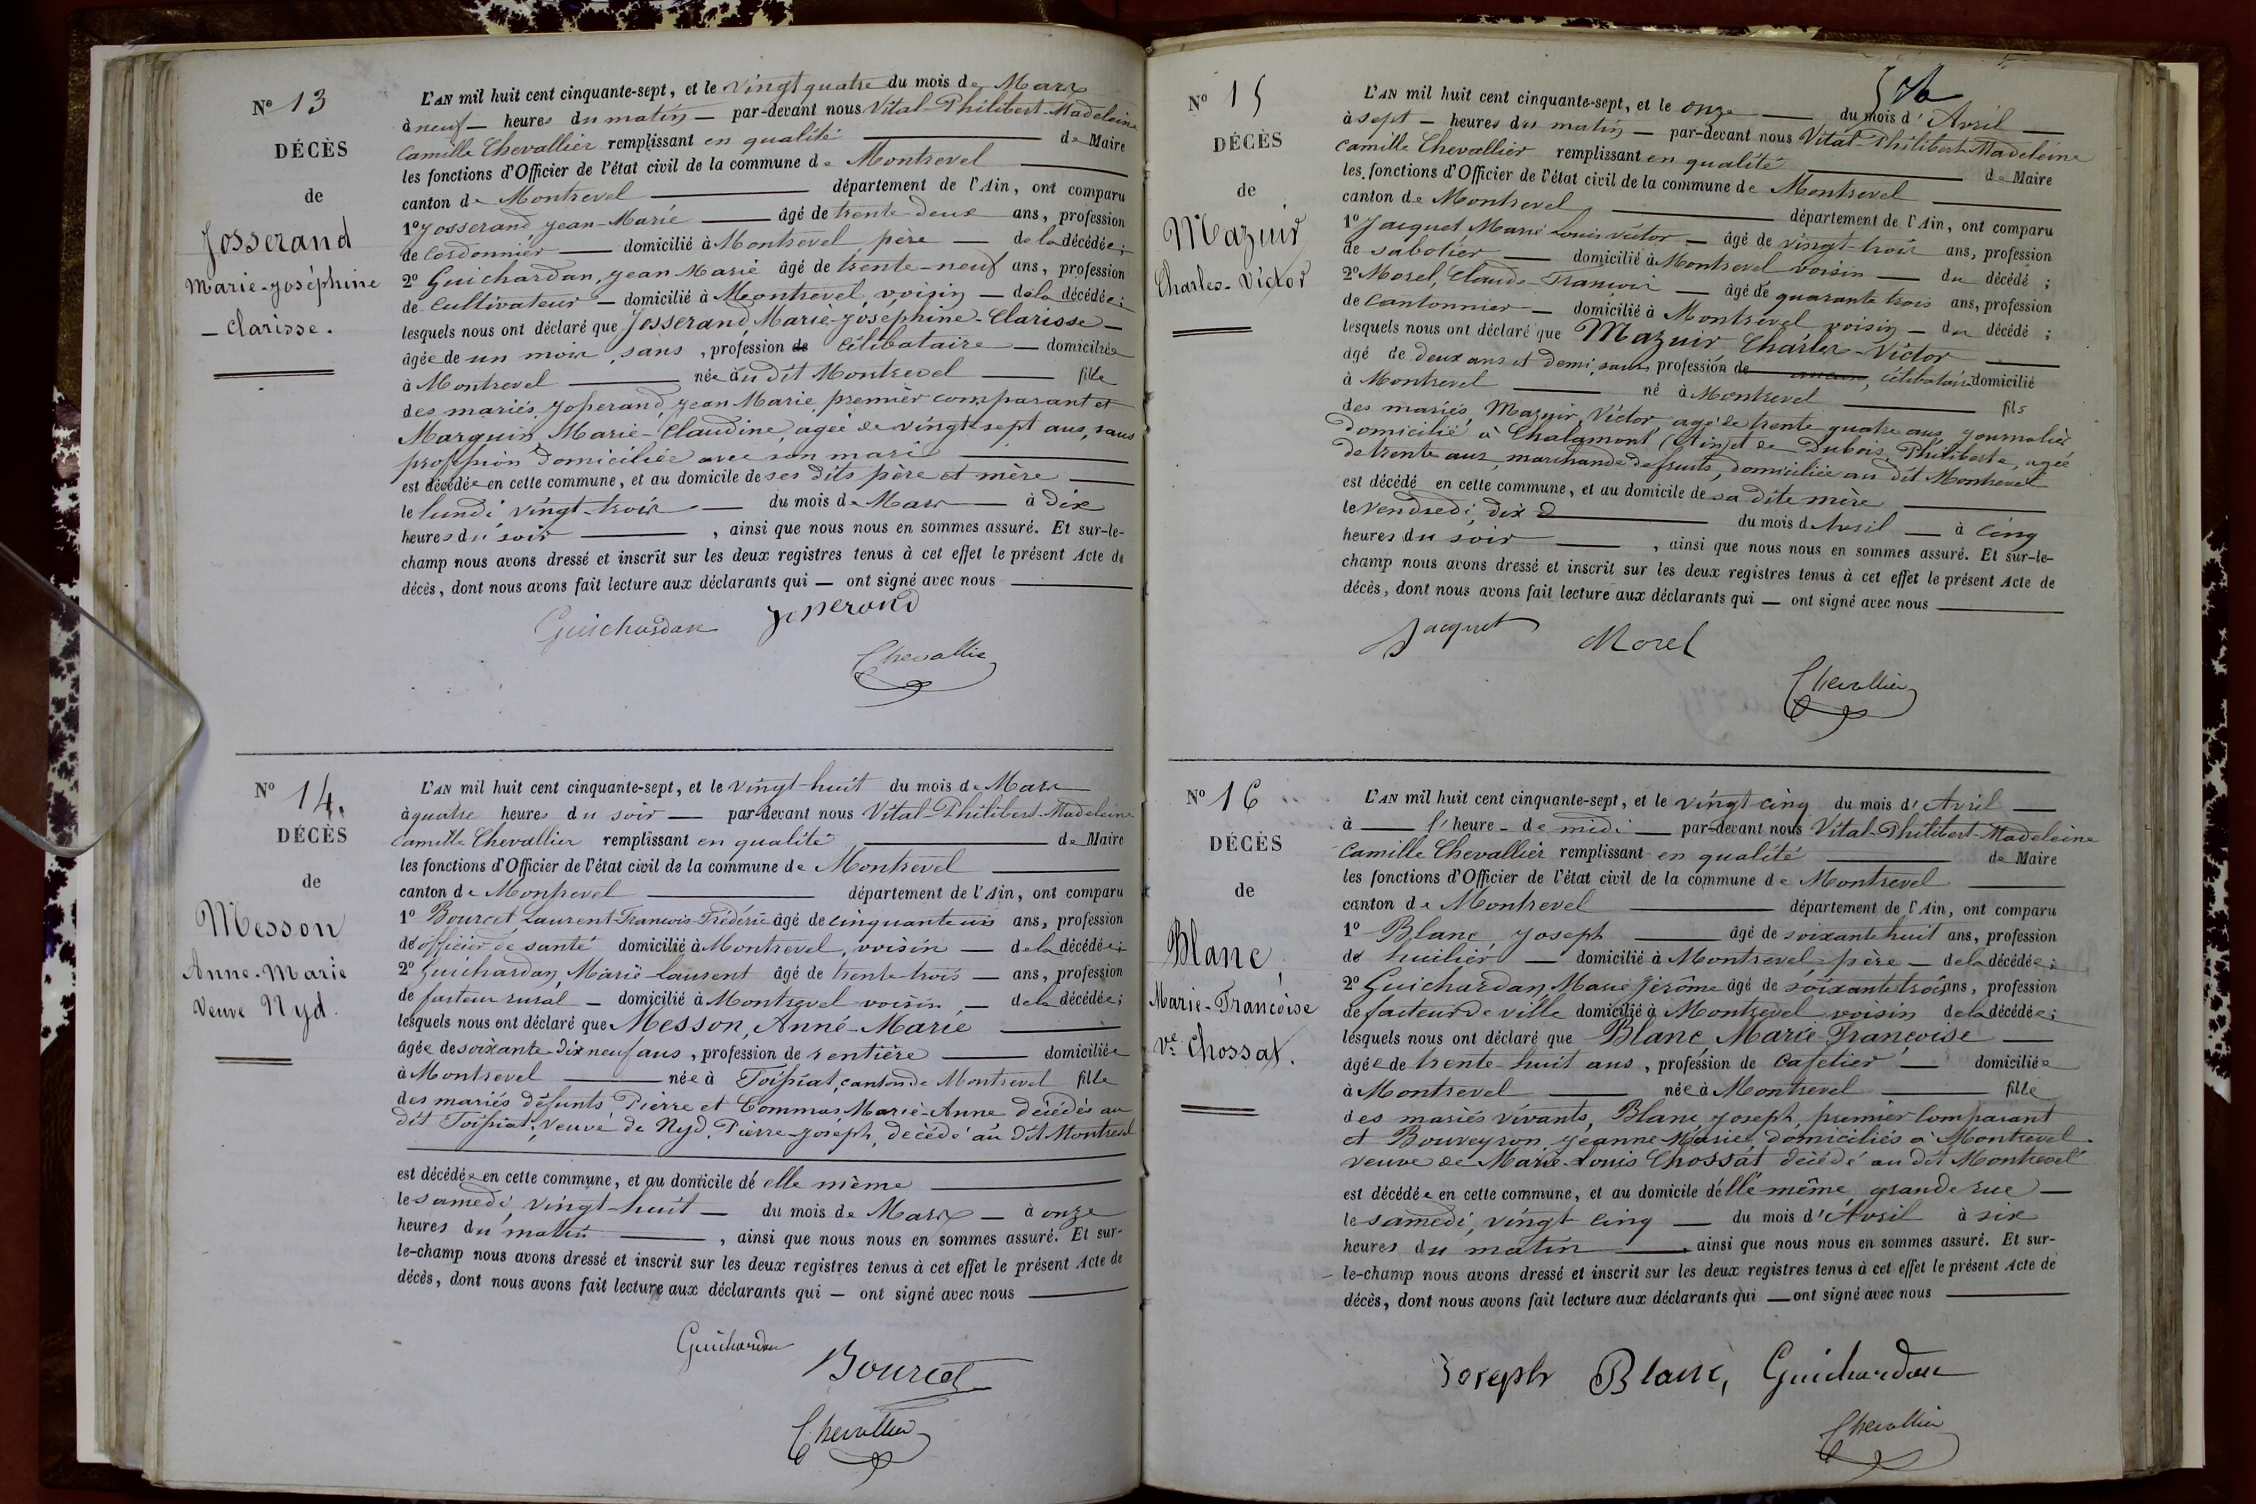 Nº 13
DÉCÈS
de
Josserand
Marie-Joséphine
- Clarisse.
L'AN mil huit cent cinquante-sept, et le vingt quatre du mois de Mars
à neuf heures du matin par-devant nous Vital-Philibert-Madeleine
Camille Chevallier remplissant en qualité de Maire
les fonctions d'Officier de l'état civil de la commune de Montrevel
canton de Montrevel département de l'Ain, ont comparu
1º Josserand, Jean-Marie âgé de trente-deux ans, profession
de Cordonnier domicilié à Montrevel, père de la décédée;
2º Guichardan, Jean Marie âgé de trente-neuf ans, profession
de Cultivateur domicilié à Montrevel, voisin de la décédée;
lesquels nous ont déclaré que Josserand, Marie-Joséphine-Clarisse
âgée de un mois, sans, profession de Célibataire domiciliée
à Montrevel née au dit Montrevel fille
des mariés, Josserand, Jean Marie, premier comparant et
Marguin, Marie-Claudine, agée de vingt-sept ans, sans
profession domiciliée avec son mari
est décédée en cette commune, et au domicile de ses dits père et mère
le lundi vingt-trois du mois de Mars à dix
heures du soir, ainsi que nous nous en sommes assuré. Et sur-le-
champ nous avons dressé et inscrit sur les deux registres tenus à cet effet le présent Acte de
décès, dont nous avons fait lecture aux déclarants qui — ont signé avec nous
Guichardan Josserand
Chevallier
Nº 14.
DÉCÈS
de
Messon
Anne-Marie
Veuve Nyd.
L'AN mil huit cent cinquante-sept, et le vingt-huit du mois de Mars
à quatre heures du soir par-devant nous Vital-Philibert-Madeleine
Camille Chevallier remplissant en qualité de Maire
les fonctions d'Officier de l'état civil de la commune de Montrevel
canton de Montrevel département de l'Ain, ont comparu
1º Bourcet Laurent-François-Frédéric âgé de cinquante un ans, profession
de officier de santé domicilié à Montrevel, voisin de la décédée;
2º Guichardan, Marie-Laurent âgé de trente-trois ans, profession
de facteur rural domicilié à Montrevel voisin de la décédée;
lesquels nous ont déclaré que Messon, Anne-Marie
âgée de soixante dix neuf ans, profession de rentière domiciliée
à Montrevel née à Foissiat, canton de Montrevel fille
des mariés défunts Pierre et Commas Marie-Anne décédés au
dit Foissiat, veuve de Nyd, Pierre-Joseph, décédé au dit Montrevel
est décédée en cette commune, et au domicile de elle même
le samedi, vingt-huit du mois de Mars à onze
heures du matin, ainsi que nous nous en sommes assuré. Et sur-
le-champ nous avons dressé et inscrit sur les deux registres tenus à cet effet le présent Acte de
décès, dont nous avons fait lecture aux déclarants qui — ont signé avec nous
Guichardan
Bourcet
Chevallier
Nº 15
DÉCÈS
de
Mazuir
Charles-Victor
L'AN mil huit cent cinquante-sept, et le onze du mois d'Avril
à sept heures du matin par-devant nous Vital-Philibert-Madeleine
Camille Chevallier remplissant en qualité de Maire
les fonctions d'Officier de l'état civil de la commune de Montrevel
canton de Montrevel département de l'Ain, ont comparu
1º Jacquet Marie Louis Victor âgé de vingt-trois ans, profession
de sabotier domicilié à Montrevel voisin du décédé;
2º Morel, Claude-François âgé de quarante trois ans, profession
de Cantonnier domicilié à Montrevel voisin du décédé;
lesquels nous ont déclaré que Mazuir Charles-Victor
agé de deux ans et demi, sans profession de aucune, célibataire domicilié
à Montrevel né à Montrevel fils
des mariés Mazuir, Victor agé de trente quatre ans, journalier
domicilié à Chalamont (Ain) et de Dubois Philiberte, agée
de trente ans, marchande de fruits, domiciliée au dit Montrevel
est décédé en cette commune, et au domicile de sa dite mère
le Vendredi, dix du mois d'Avril à cinq
heures du soir, ainsi que nous nous en sommes assuré. Et sur-le-
champ nous avons dressé et inscrit sur les deux registres tenus à cet effet le présent Acte de
décès, dont nous avons fait lecture aux déclarants qui — ont signé avec nous
Jacquet Morel
Chevallier
Nº 16
DÉCÈS
de
Blanc,
Marie-Françoise
Ve Chossat.
L'AN mil huit cent cinquante-sept, et le vingt-cinq du mois d'Avril
à l'heure de midi par-devant nous Vital-Philibert-Madeleine
Camille Chevallier remplissant en qualité de Maire
les fonctions d'Officier de l'état civil de la commune de Montrevel
canton de Montrevel département de l'Ain, ont comparu
1º Blanc, Joseph âgé de soixante huit ans, profession
de huilier domicilié à Montrevel père de la décédée;
2º Guichardan, Marie Jérôme âgé de soixante trois ans, profession
de facteur de ville domicilié à Montrevel voisin de la décédée;
lesquels nous ont déclaré que Blanc, Marie-Françoise
âgée de trente-huit ans, profession de Cafetier domiciliée
à Montrevel née à Montrevel fille
des mariés vivants, Blanc, Joseph, premier comparant
et Bouveyron, Jeanne Marie, domiciliés à Montrevel.
veuve de Marie-Louis Chossat décédé au dit Montrevel
est décédée en cette commune, et au domicile d'elle même grande rue
le samedi, vingt cinq du mois d'Avril à six
heures du matin ainsi que nous nous en sommes assuré. Et sur-
le-champ nous avons dressé et inscrit sur les deux registres tenus à cet effet le présent Acte de
décès, dont nous avons fait lecture aux déclarants qui — ont signé avec nous
Joseph Blanc, Guichardan
Chevallier